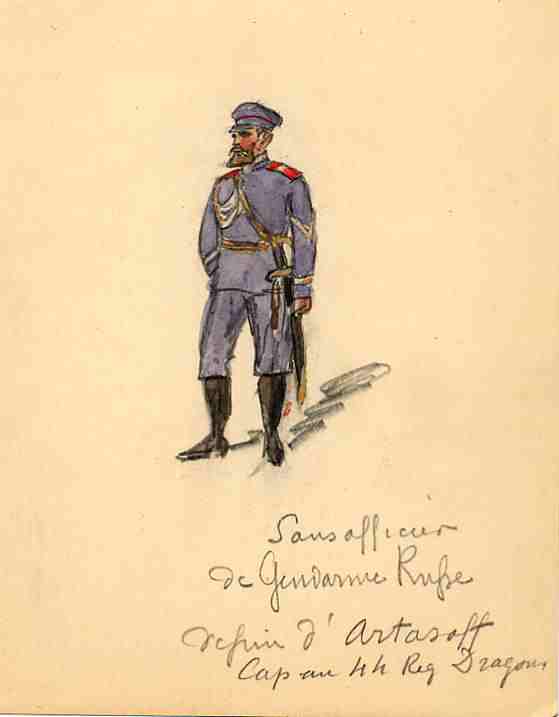 Sousofficier
de Gendarme Russe
dessin d' Artasoff
Cap au 44 Reg Dragons